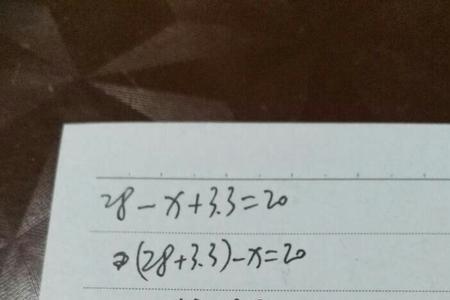 28-x+3.3=20
⇒(28+3.3)-x=20